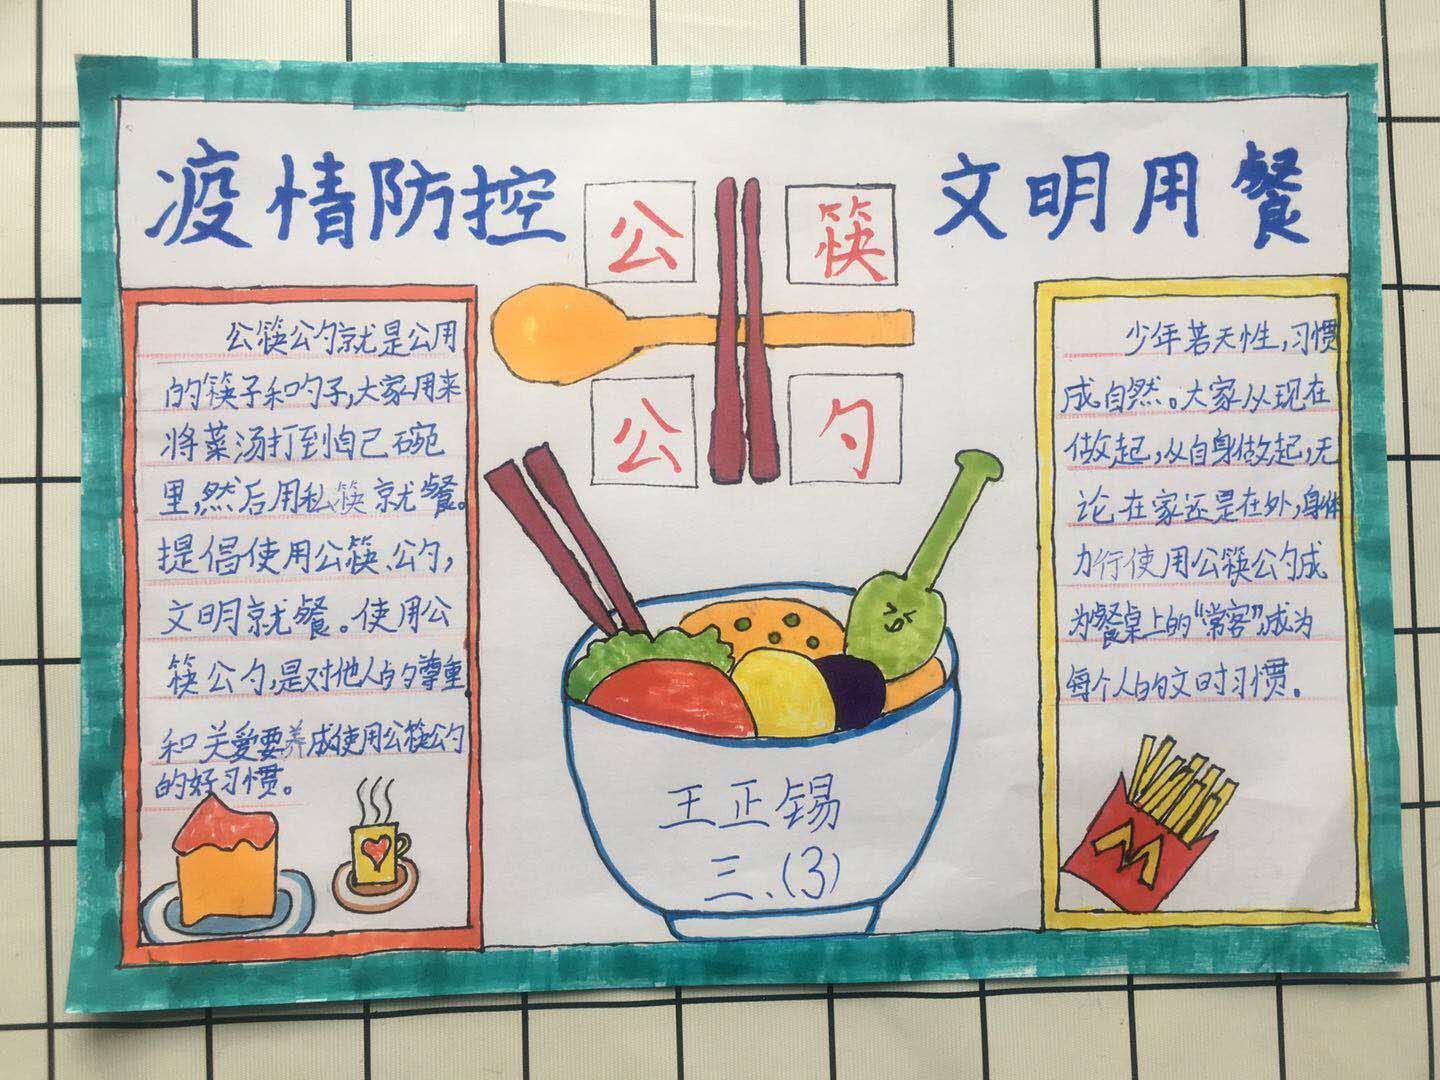 疫情防控
文明用餐
公 筷
公 勺
公筷公勺就是公用
的筷子和勺子,大家用来
将菜汤打到自己碗
里,然后用私筷就餐。
提倡使用公筷、公勺,
文明就餐。使用公
筷公勺,是对他人的尊重
和关爱要养成使用公筷公勺
的好习惯。
王正锡
三、(3)
少年若天性,习惯
成自然。大家从现在
做起,从自身做起,无
论在家还是在外,身体
力行使用公筷公勺成
为餐桌上的“常客”,成为
每个人的文明习惯。